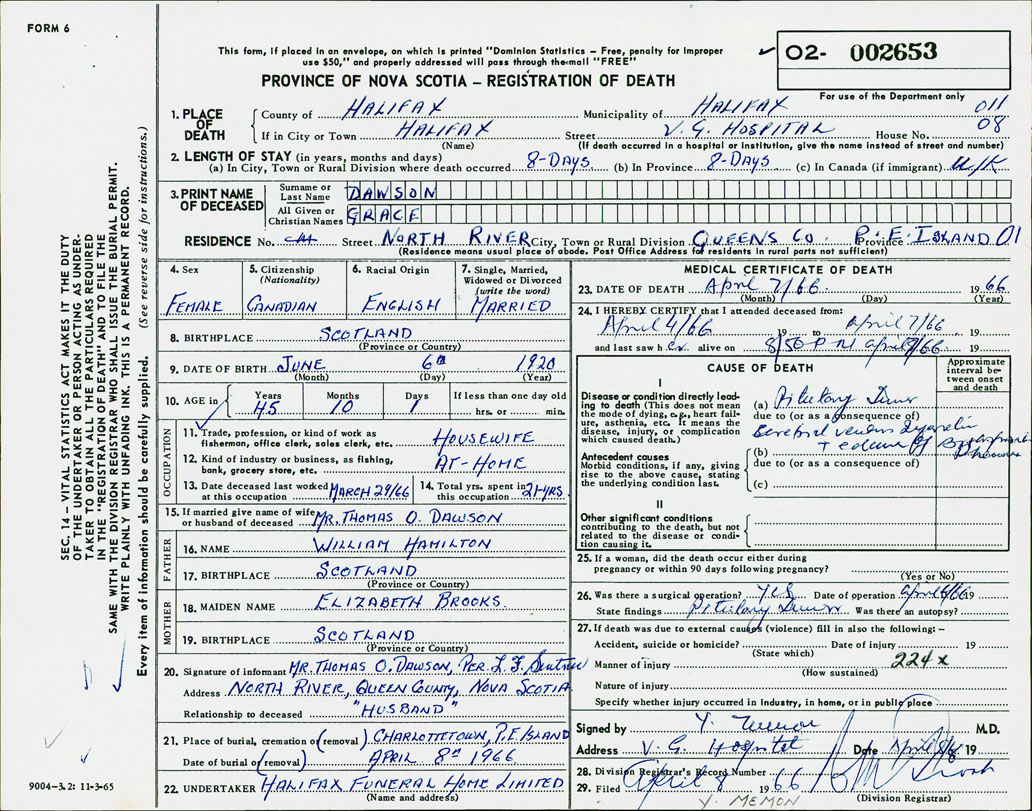 FORM 6
This form, if placed in an envelope, on which is printed "Dominion Statistics – Free, penalty for improper
use $50," and properly addressed will pass through the mail "FREE"
PROVINCE OF NOVA SCOTIA – REGISTRATION OF DEATH
02- 002653
For use of the Department only
011
08
1. PLACE OF DEATH
County of HALIFAX Municipality of HALIFAX
If in City or Town HALIFAX Street V. G. HOSPITAL House No.
(Name) (If death occurred in a hospital or institution, give the name instead of street and number)
2. LENGTH OF STAY (in years, months and days)
(a) In City, Town or Rural Division where death occurred 8-DAYS (b) In Province 8-DAYS (c) In Canada (if immigrant) U/K
3. PRINT NAME OF DECEASED
Surname or Last Name DAWSON
All Given or Christian Names GRACE
RESIDENCE No. Street NORTH RIVER City, Town or Rural Division QUEENS CO Province P.E. ISLAND 01
(Residence means usual place of abode. Post Office Address for residents in rural parts not sufficient)
4. Sex FEMALE
5. Citizenship (Nationality) CANADIAN
6. Racial Origin ENGLISH
7. Single, Married, Widowed or Divorced (write the word) MARRIED
8. BIRTHPLACE SCOTLAND
(Province or Country)
9. DATE OF BIRTH JUNE 6th 1920
(Month) (Day) (Year)
10. AGE in Years 45 Months 10 Days 1 If less than one day old hrs. or min.
OCCUPATION
11. Trade, profession, or kind of work as fisherman, office clerk, sales clerk, etc. HOUSEWIFE
12. Kind of industry or business, as fishing, bank, grocery store, etc. AT-HOME
13. Date deceased last worked at this occupation MARCH 29/66
14. Total yrs. spent in this occupation 21-YRS.
15. If married give name of wife or husband of deceased MR. THOMAS O. DAWSON
FATHER
16. NAME WILLIAM HAMILTON
17. BIRTHPLACE SCOTLAND
(Province or Country)
MOTHER
18. MAIDEN NAME ELIZABETH BROOKS.
19. BIRTHPLACE SCOTLAND
(Province or Country)
20. Signature of informant MR. THOMAS O. DAWSON, PER. L. F.
Address NORTH RIVER, QUEEN COUNTY, NOVA SCOTIA
Relationship to deceased "HUSBAND"
21. Place of burial, cremation or (removal) CHARLOTTETOWN, P.E. ISLAND
Date of burial or (removal) APRIL 8th 1966
22. UNDERTAKER HALIFAX FUNERAL HOME LIMITED
(Name and address)
MEDICAL CERTIFICATE OF DEATH
23. DATE OF DEATH April 7/66 19 66
(Month) (Day) (Year)
24. I HEREBY CERTIFY that I attended deceased from:
April 4/66 19 to april 7/66 19
and last saw h er alive on 8/50 P.M. april 7/66 19
CAUSE OF DEATH
Approximate interval between onset and death
I
Disease or condition directly leading to death (This does not mean the mode of dying, e.g., heart failure, asthenia, etc. It means the disease, injury, or complication which caused death.)
(a) Pituitary Tumor
due to (or as a consequence of)
Cerebral venous
Antecedent causes
Morbid conditions, if any, giving rise to the above cause, stating the underlying condition last.
(b) + edema of
due to (or as a consequence of)
(c)
II
Other significant conditions contributing to the death, but not related to the disease or condition causing it.
25. If a woman, did the death occur either during pregnancy or within 90 days following pregnancy?
(Yes or No)
26. Was there a surgical operation? Yes Date of operation april 6/66 19
State findings Pituitary Tumor Was there an autopsy?
27. If death was due to external causes (violence) fill in also the following: –
Accident, suicide or homicide? Date of injury 19
(State which)
Manner of injury 224x
(How sustained)
Nature of injury
Specify whether injury occurred in Industry, in home, or in public place
Signed by Y. Memon M.D.
Address V. G. Hospital Date April 8/66 19
28. Division Registrar's Record Number
29. Filed April 8 1966
(Division Registrar)
Y. MEMON
SEC. 14 – VITAL STATISTICS ACT MAKES IT THE DUTY
OF THE UNDERTAKER OR PERSON ACTING AS UNDER-
TAKER TO OBTAIN ALL THE PARTICULARS REQUIRED
IN THE "REGISTRATION OF DEATH" AND TO FILE THE
SAME WITH THE DIVISION REGISTRAR WHO SHALL ISSUE THE BURIAL PERMIT.
WRITE PLAINLY WITH UNFADING INK. THIS IS A PERMANENT RECORD.
Every item of information should be carefully supplied. (See reverse side for instructions.)
9004-3.2: 11-3-65